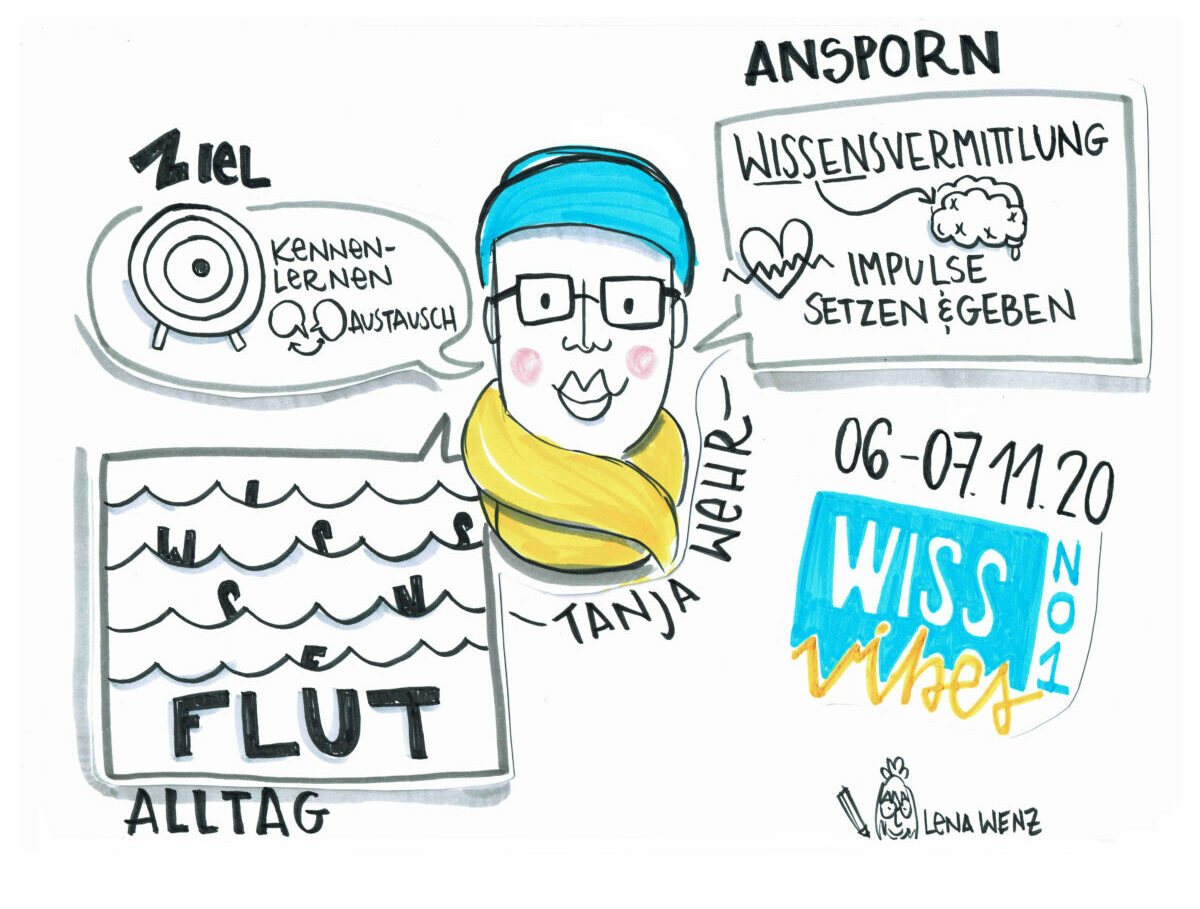 ZIEL
KENNEN-
LERNEN
AUSTAUSCH
ANSPORN
WISSENSVERMITTLUNG
IMPULSE
SETZEN & GEBEN
WISSENS
FLUT
ALLTAG
– TANJA WEHR –
06 – 07.11.20
WISS
vibes
NO1
LENA WENZ